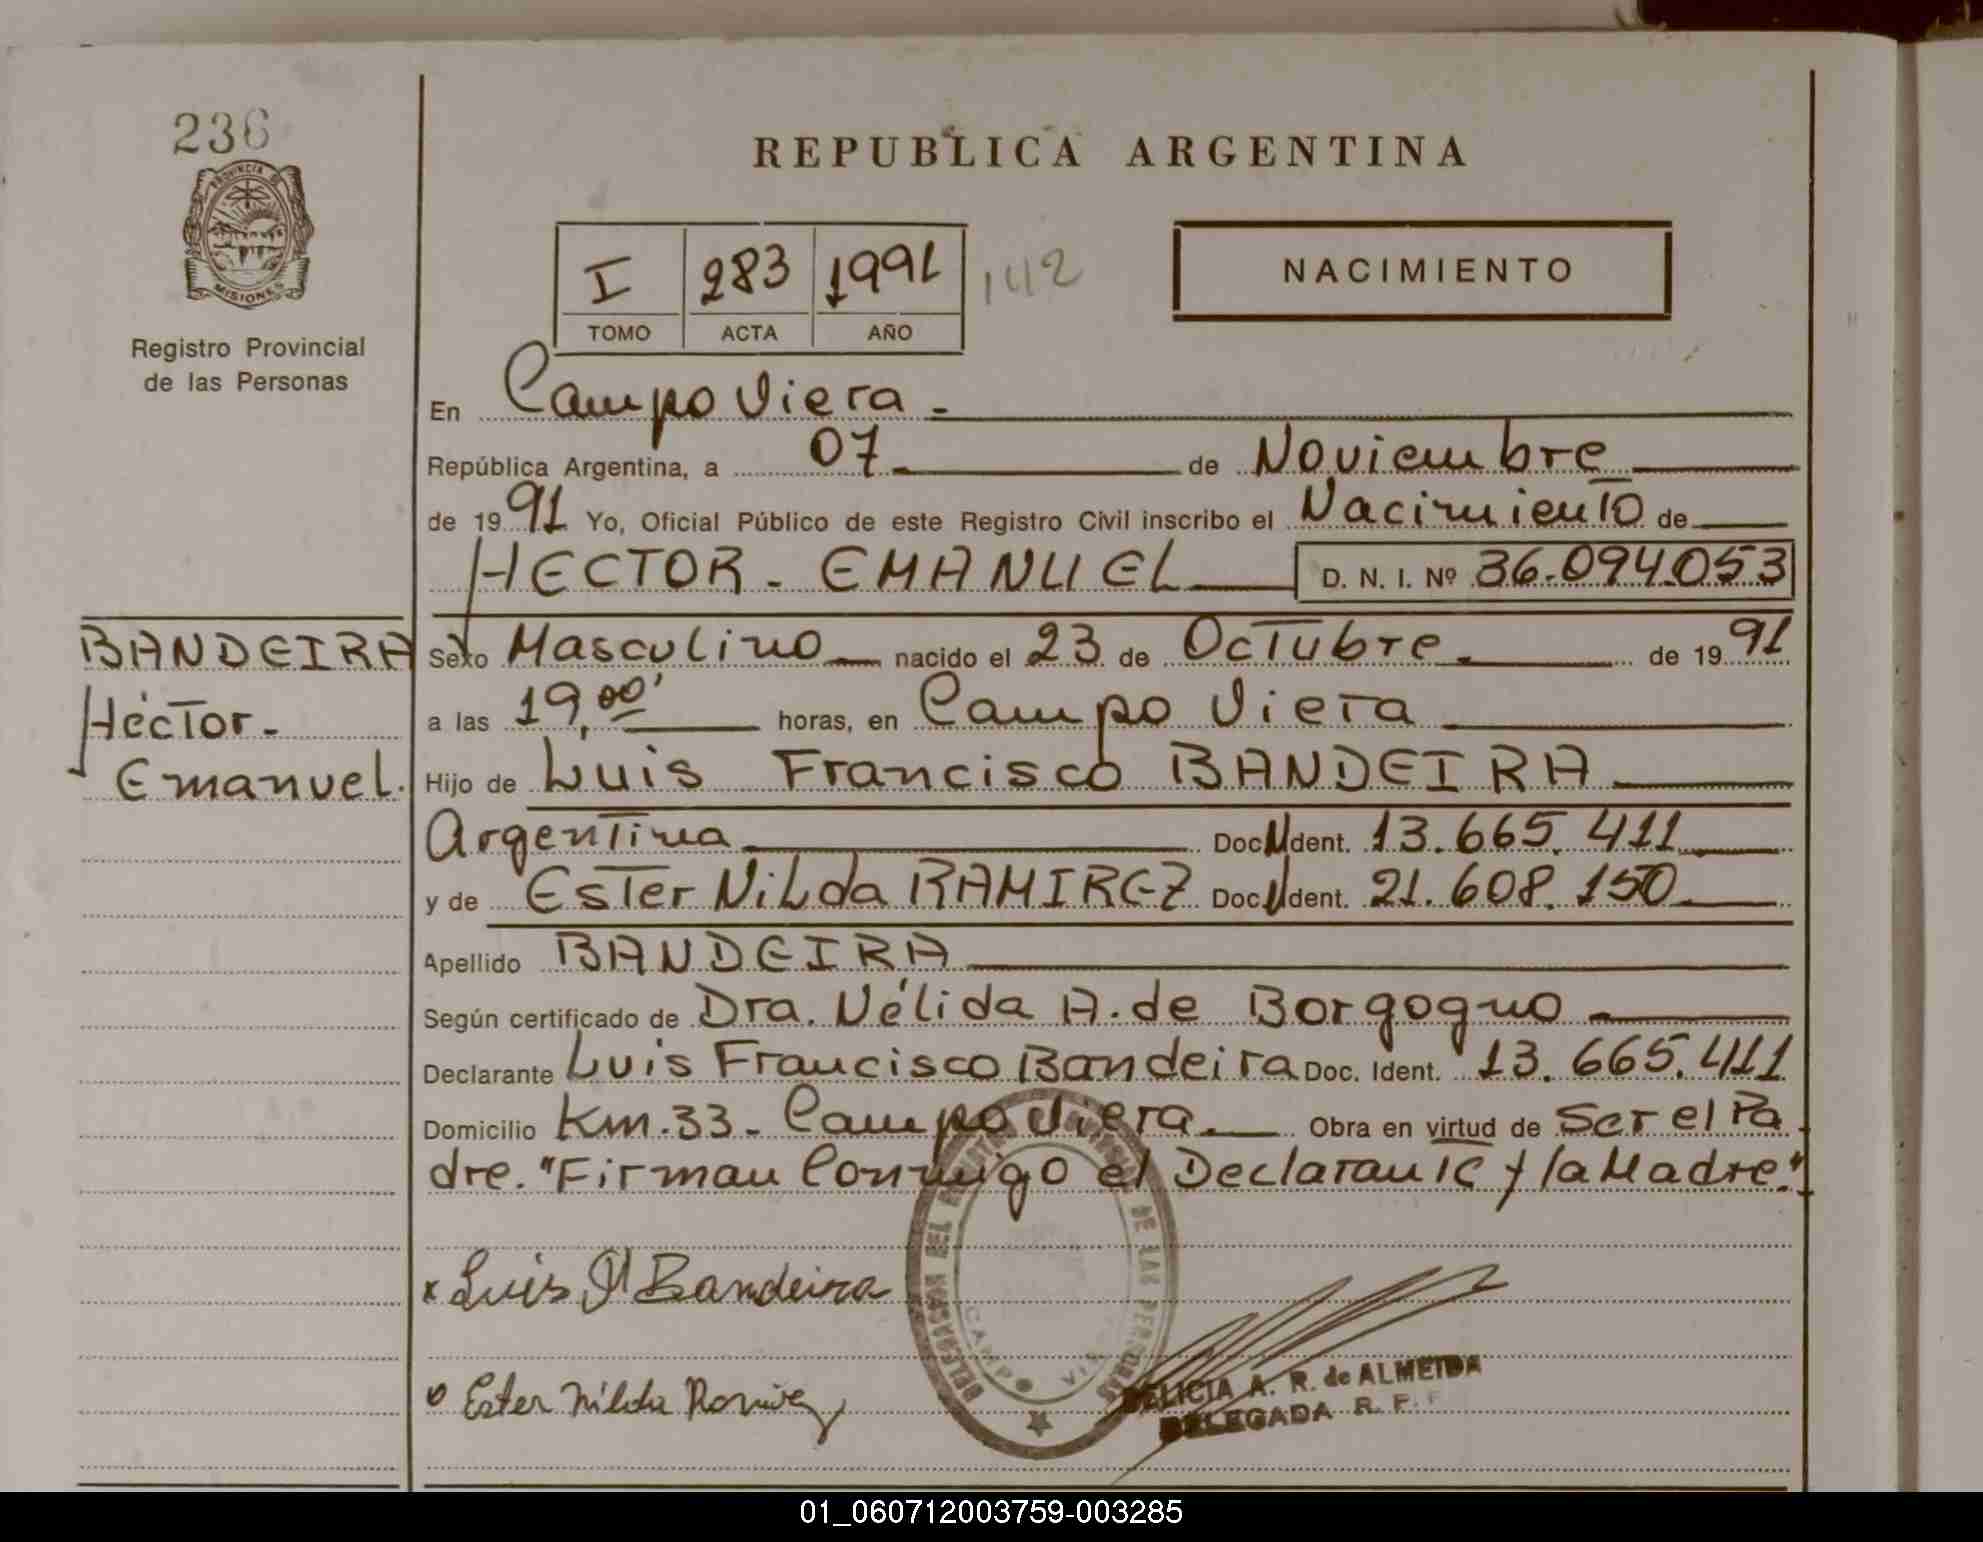 236
PROVINCIA DE
MISIONES
Registro Provincial
de las Personas
REPUBLICA ARGENTINA
I 283 1991 142
TOMO ACTA AÑO
NACIMIENTO
En Campo Viera
República Argentina, a 07 de Noviembre
de 1991 Yo, Oficial Público de este Registro Civil inscribo el Nacimiento de
HECTOR - EMANUEL D. N. I. Nº 36.094.053
BANDEIRA
Héctor-
Emanuel.
Sexo Masculino nacido el 23 de Octubre de 1991
a las 19,00' horas, en Campo Viera
Hijo de Luis Francisco BANDEIRA
Argentina Doc. Ident. 13.665.411
y de Ester Nilda RAMIREZ Doc. Ident. 21.608.150
Apellido BANDEIRA
Según certificado de Dra. Nélida A. de Borgogno
Declarante Luis Francisco Bandeira Doc. Ident. 13.665.411
Domicilio Km. 33 - Campo Viera Obra en virtud de Ser el Pa
dre. "Firman Conmigo el Declarante y la Madre."
x Luis F Bandeira
Ester Nilda Ramirez
DELEGACION DEL REGISTRO PROVINCIAL DE LAS PERSONAS
CAMPO VIERA
DELICIA A. R. de ALMEIDA
DELEGADA R. P.
01_060712003759-003285